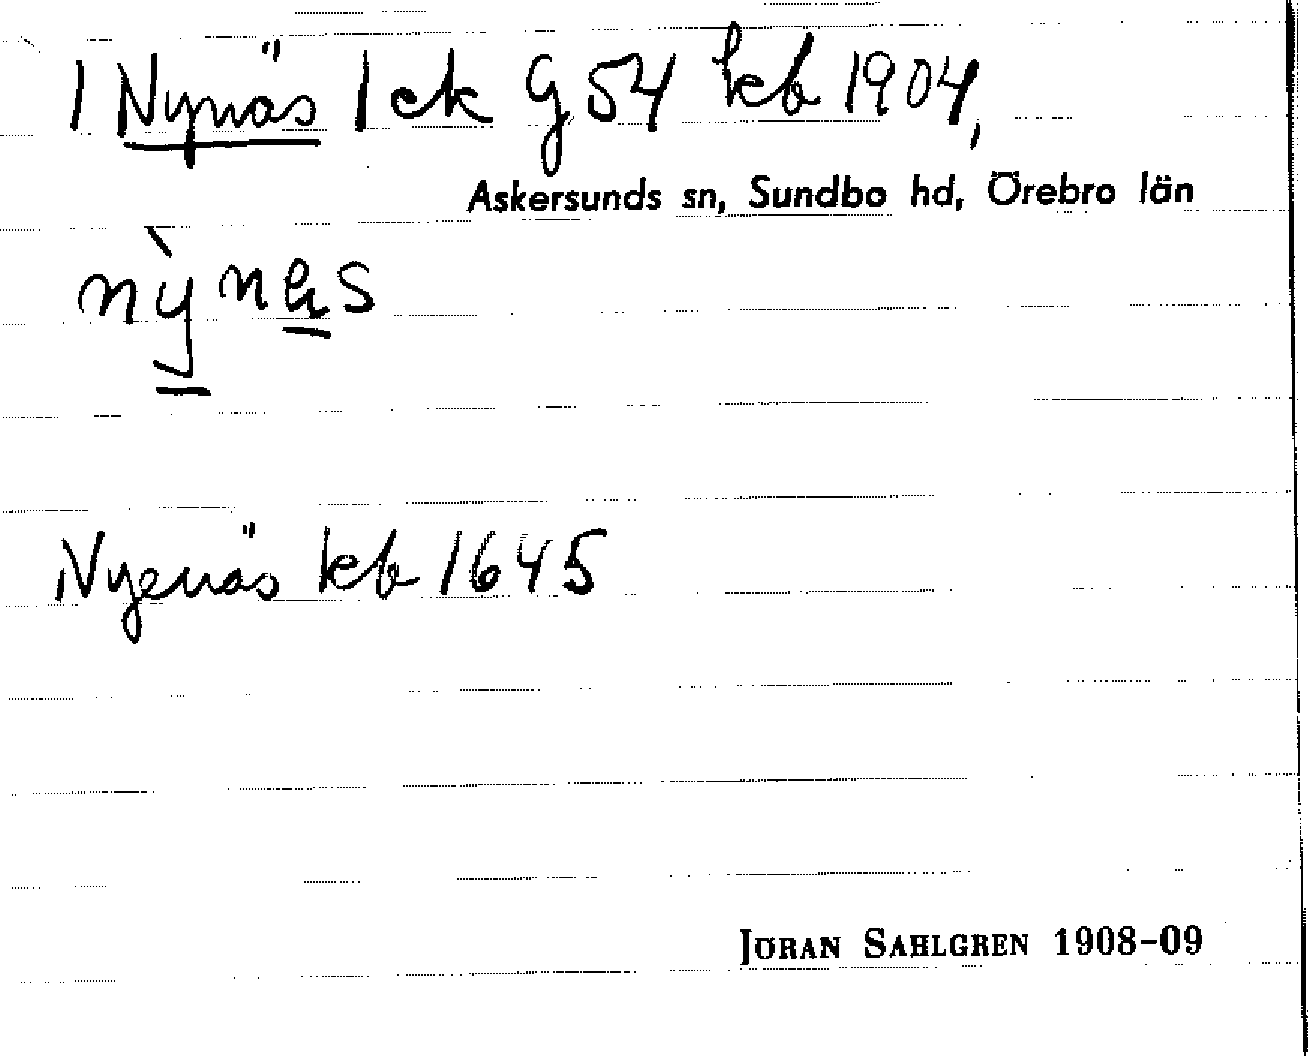 1 Nynäs 1 ek G 54 kb 1904,
Askersunds sn, Sundbo hd, Örebro län
Nyenäs kb 1645
JÖRAN SAHLGREN 1908-09